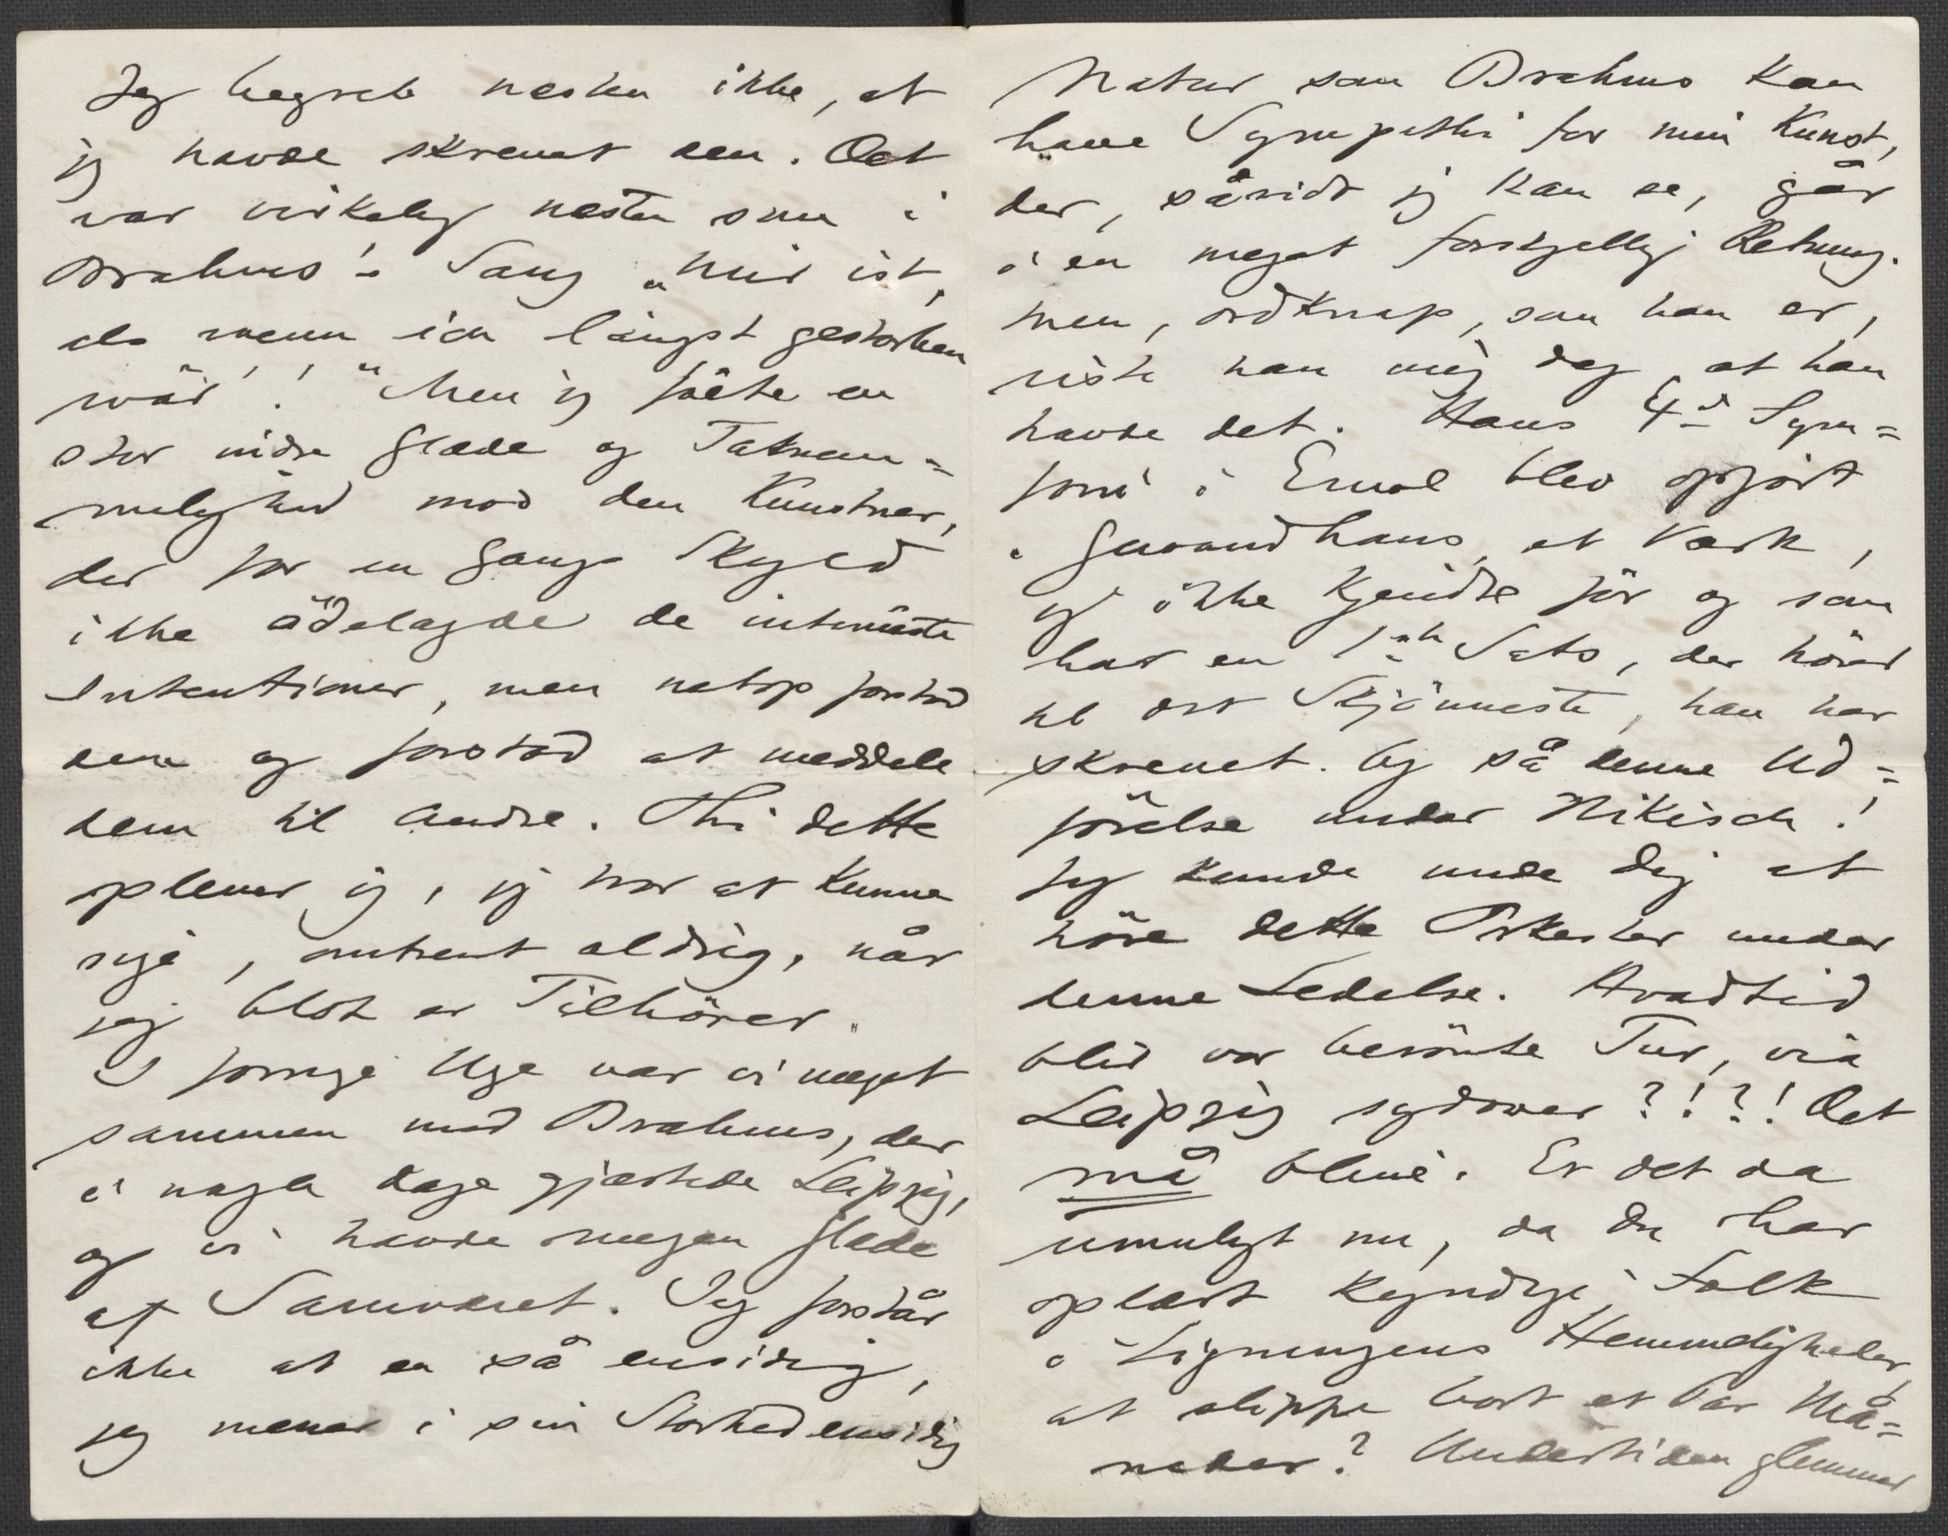 Jeg begreb næsten ikke, at
jeg havde skrevet den. Det
var virkelig næsten som i
Brahms's Sang „Mir ist,
als wenn ich längst gestorben
wär'!" Men jeg følte en
stor indre Glæde og Taknem=
melighed mod den Kunstner,
der for en Gangs Skyld
ikke ödelagde de intimeste
Intentioner, men netop forstod
dem og forstod at meddele
dem til Andre. Thi dette
oplever jeg, jeg tror at kunne
sige, omtrent aldrig, når
jeg blot er Tilhörer.
I forrige Uge var vi meget
sammen med Brahms, der
i nogle Dage gjæstede Leipzig,
og vi havde megen Glæde
af Samværet. Jeg forstår
ikke at en så ensidig,
jeg mener i sin Storhed ensidig
Natur som Brahms kan
have Sympathi for min Kunst,
der, såvidt jeg kan se, går
i en meget forskjellig Retning.
Men, ordknap, som han er,
viste han mig dog, at han
havde det. Hans 4de Sym=
foni i Emol blev opfört
i Gewandhaus, et Værk,
jeg ikke kjendte för og som
har en 1ste Sats, der hörer
til det Skjönneste, han har
skrevet. Og så denne Ud=
förelse under Nikisch!
Jeg kunde unde Dig at
höre dette Orkester under
denne Ledelse. Hvadtid
blir vor berömte Tur, via
Leipzig sydover?!?! Det
må blive. Er det da
umuligt nu, da Du har
oplært kyndige Folk
i Ligningens Hemmeligheder,
at slippe bort et Par Må=
neder? Undertiden glemmer